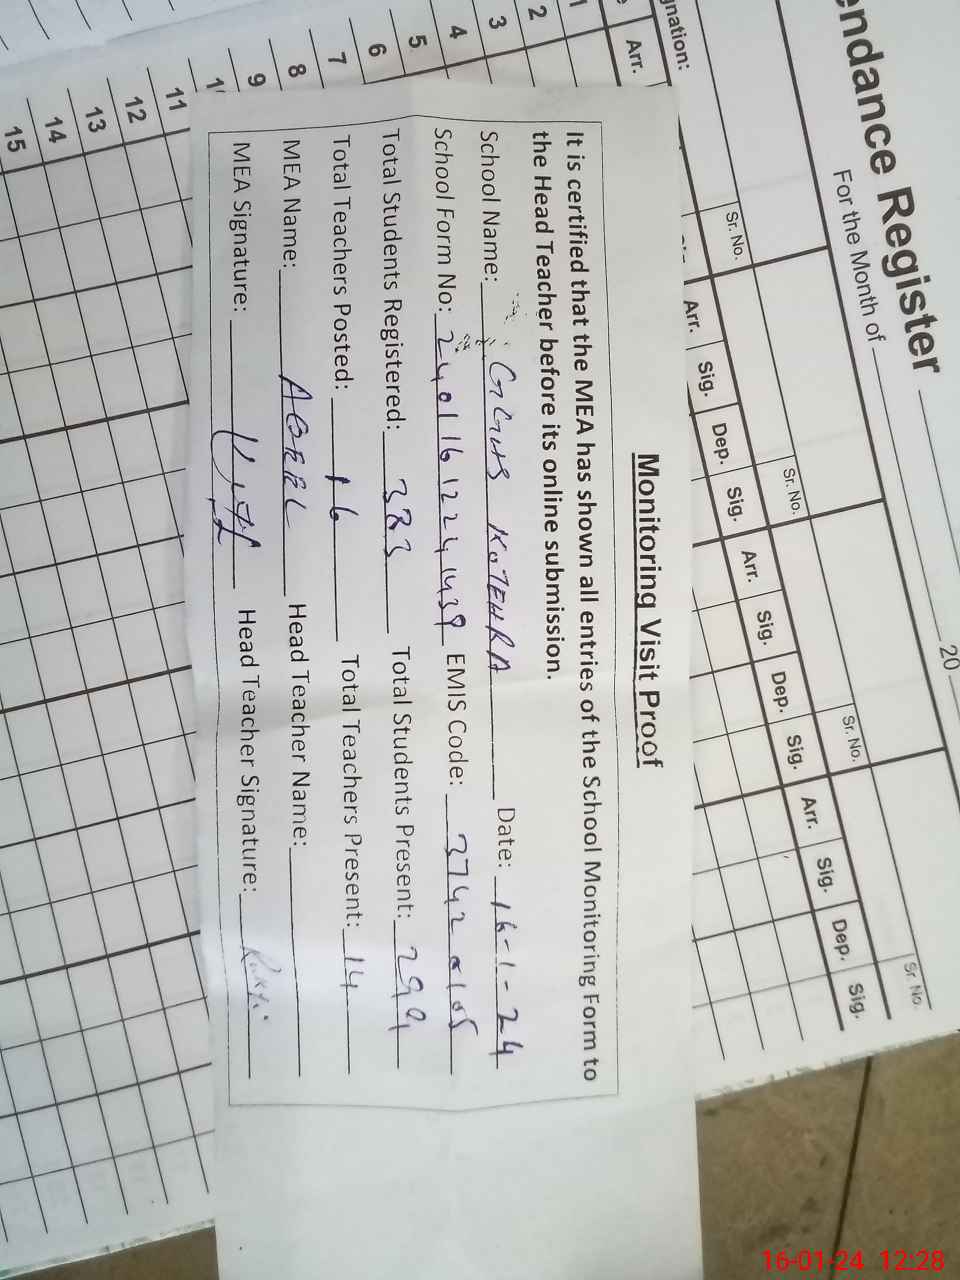 Monitoring Visit Proof
It is certified that the MEA has shown all entries of the School Monitoring Form to
the Head Teacher before its online submission.
School Name: GGHS KOTEHRA Date: 16-1-24
School Form No: 24011612241439 EMIS Code: 37420105
Total Students Registered: 323 Total Students Present: 299
Total Teachers Posted: 16 Total Teachers Present: 14
MEA Name: AQEEL Head Teacher Name:
MEA Signature: Head Teacher Signature:
endance Register
For the Month of 20
gnation:
Sr. No. Sr. No. Sr. No. Sr. No.
Arr. Arr. Sig. Dep. Sig. Arr. Sig. Dep. Sig. Arr. Sig. Dep. Sig.
1
2
3
4
5
6
7
8
9
11
12
13
14
15
16-01-24 12:28